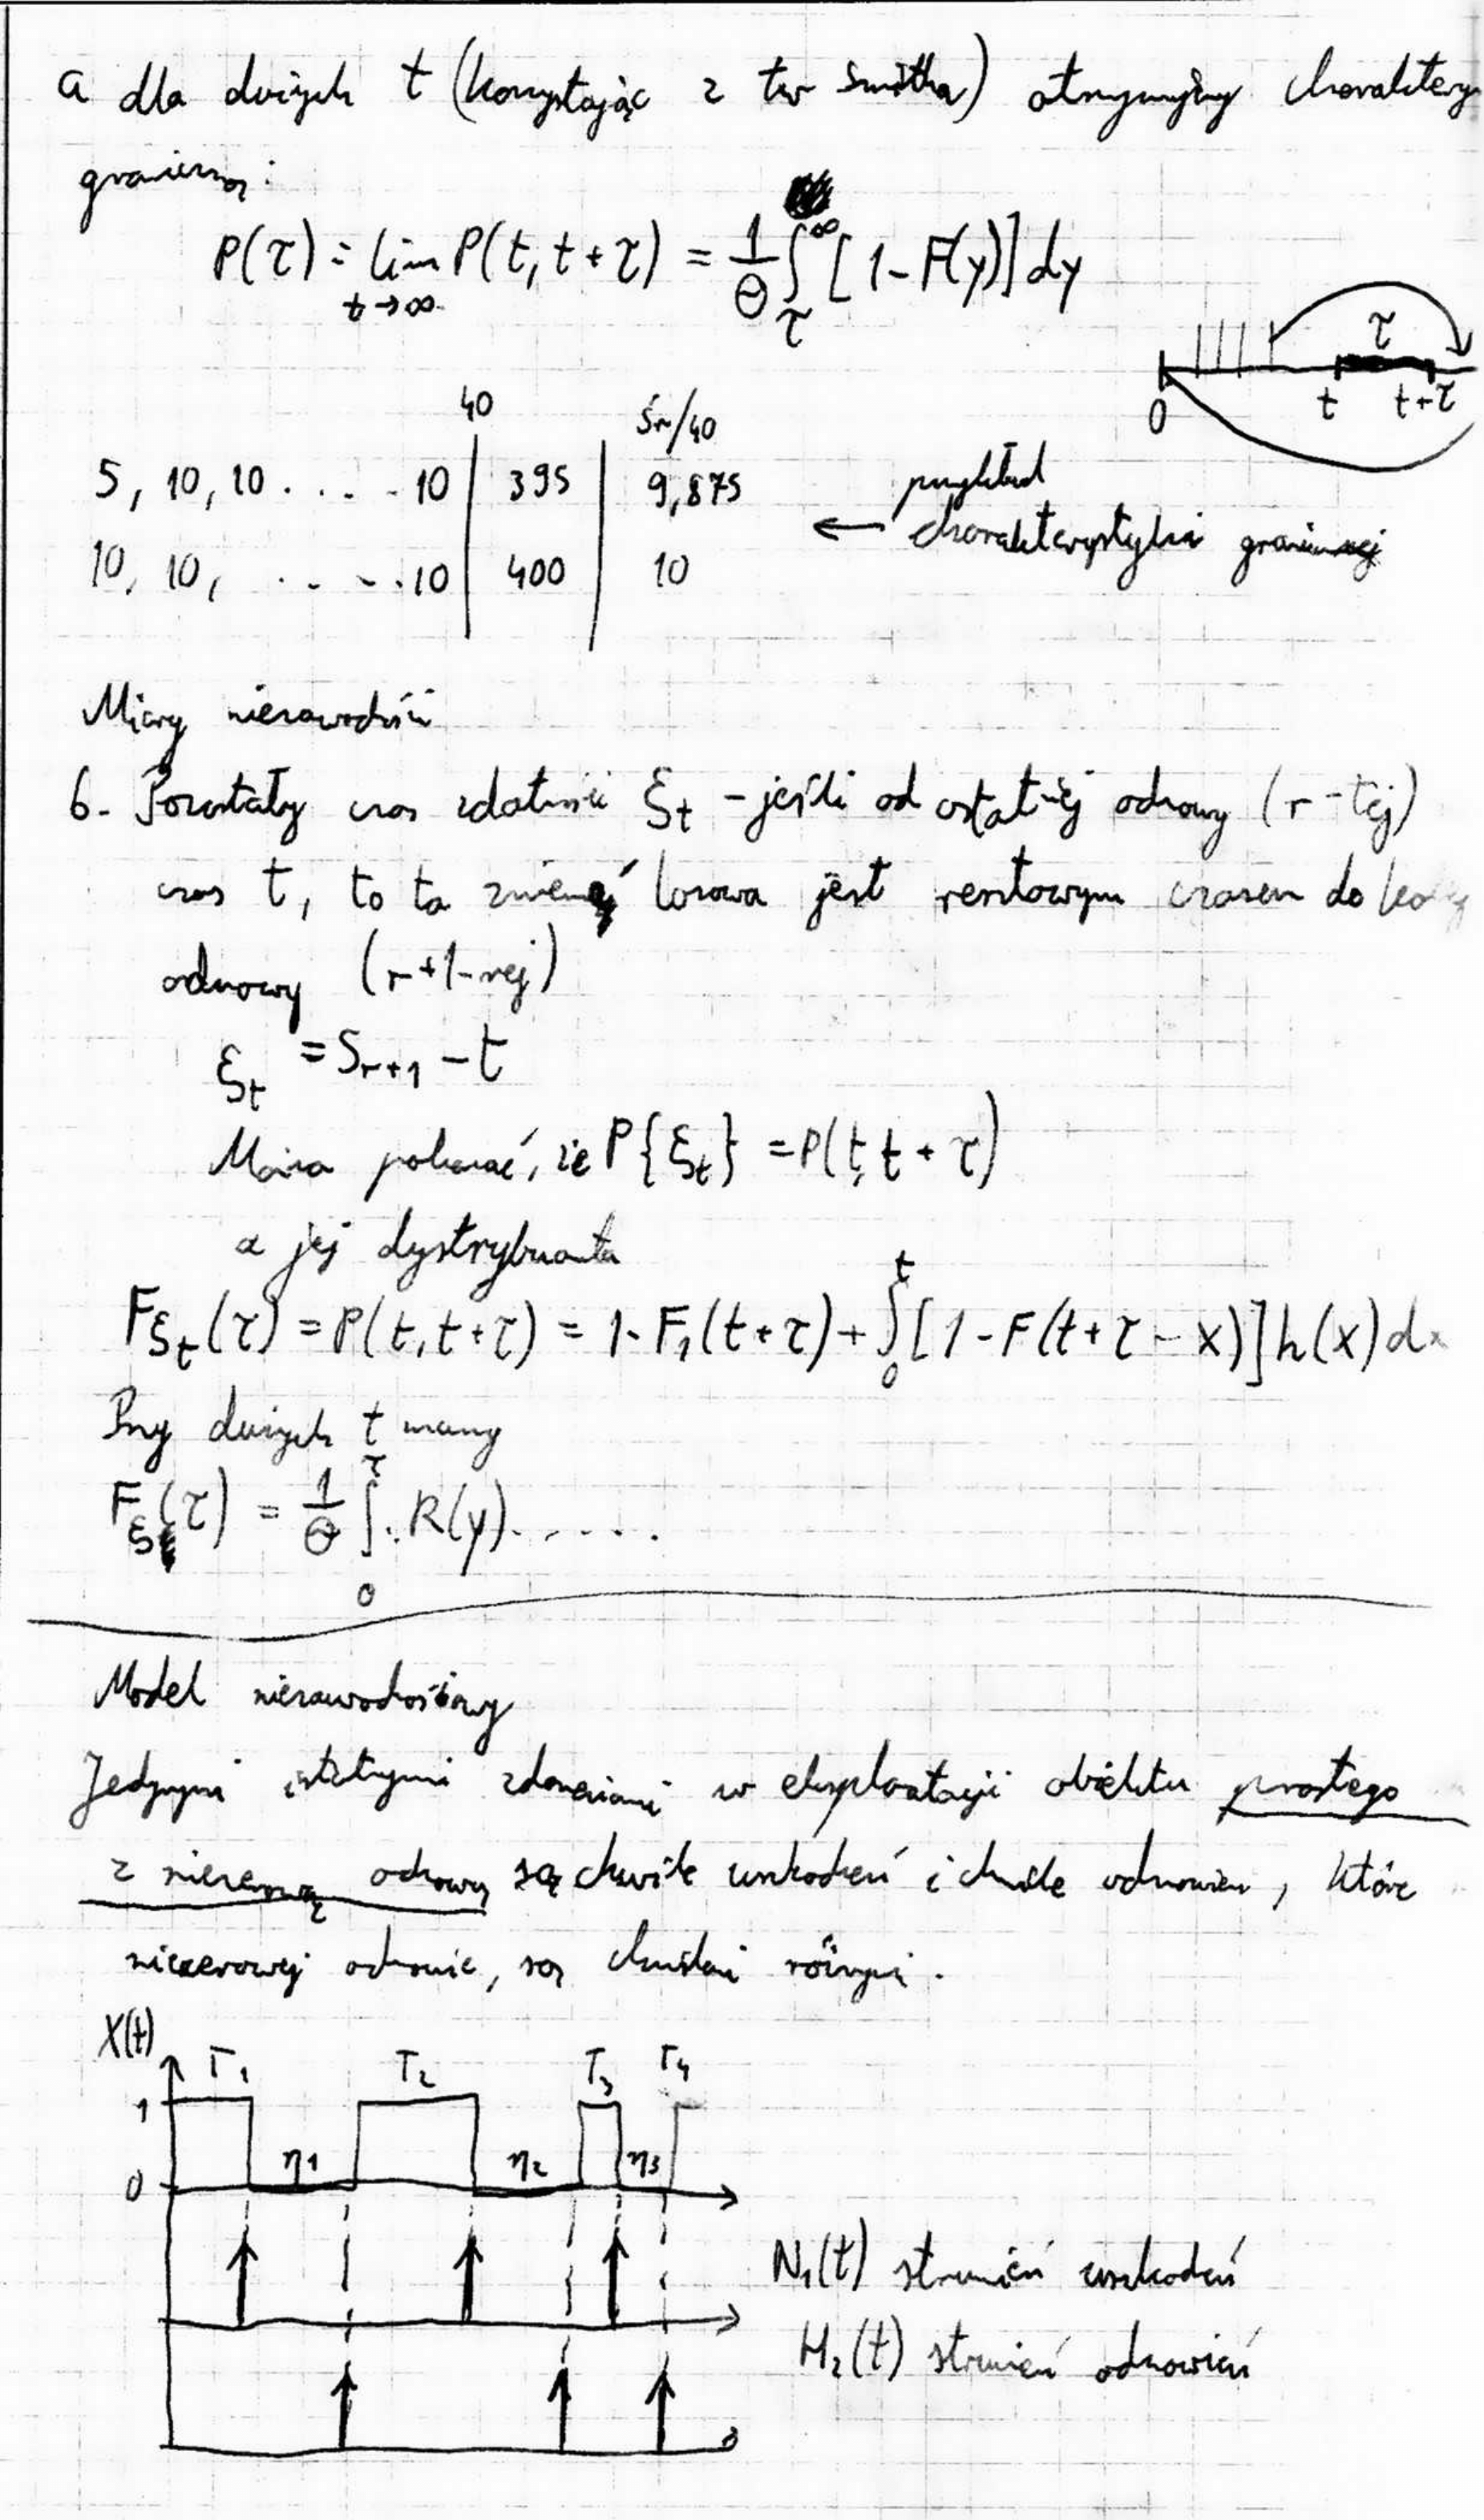 a dla dużych t (korzystając z tw Smitha) otrzymujemy charakterys
graniczną:
P(τ) = lim P(t, t+τ) = 1/Θ ∫ [1-F(y)] dy
t→∞ τ ∞
τ
0 t t+τ
40 Śr/40
5, 10, 10 . . . . 10 | 395 | 9,875
10, 10, . . . . 10 | 400 | 10
← przykład
charakterystyki granicznej
Miary niezawodności
6. Pozostały czas zdatności ξt - jeśli od ostatniej odnowy (r-tej)
czas t, to ta zmienną losowa jest resztowym czasem do
odnowy (r+1-wej)
ξt = Sr+1 - t
Można pokazać, że P{ξt} = P(t, t+τ)
a jej dystrybuanta
Fξt(τ) = P(t, t+τ) = 1-F1(t+τ) + ∫0^t [1-F(t+τ-x)] h(x) dx
Przy dużych t mamy
Fξ(τ) = 1/Θ ∫0^τ R(y) . . . . .
Model niezawodnościowy
Jedynymi istotnymi zdarzeniami w eksploatacji obiektu prostego
z niezerową odnową są chwile uszkodzeń i chwile odnowień, które
niezerowej odnowie, są chwilami różnymi.
X(t)
T1 T2 T3 T4
1
η1 η2 η3
0
N1(t) strumień uszkodzeń
H2(t) strumień odnowień